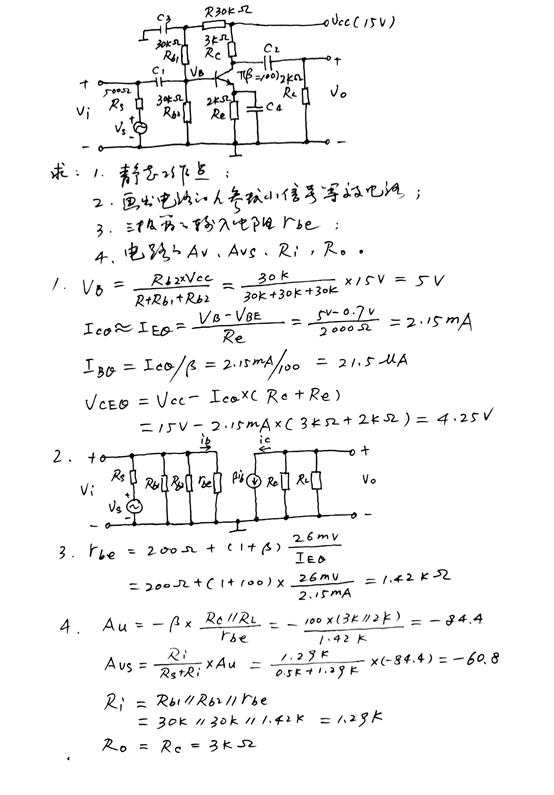 C3 R30kΩ Vcc(15V)
30kΩ Rb1 3kΩ Rc C2
+ 500Ω Rs C1 VB Tβ=100) 2kΩ RL +
Vi Vs + 30kΩ Rb2 2kΩ Re C4 Vo
- -
求: 1. 静态工作点;
2. 画出电路的H参数小信号等效电路;
3. 三极管的输入电阻rbe;
4. 电路的Av、Avs、Ri、Ro。
1. VB = Rb2×Vcc / R+Rb1+Rb2 = 30K / 30K+30K+30K ×15V = 5V
ICQ≈IEQ = VB-VBE / Re = 5V-0.7V / 2000Ω = 2.15mA
IBQ = ICQ/β = 2.15mA/100 = 21.5μA
VCEQ = Vcc - ICQ×(Rc+Re)
=15V-2.15mA×(3KΩ+2KΩ)=4.25V
2. + ib ic +
Vi Rs Vs + Rb1 Rb2 rbe βib Rc RL Vo
- -
3. rbe = 200Ω + (1+β) 26mV / IEQ
=200Ω+(1+100)× 26mV / 2.15mA = 1.42KΩ
4. Au = -β× Rc//RL / rbe = - 100×(3K//2K) / 1.42K = -84.4
Aus = Ri / Rs+Ri ×Au = 1.29K / 0.5K+1.29K ×(-84.4)=-60.8
Ri = Rb1//Rb2//rbe
= 30K//30K//1.42K = 1.29K
Ro = Rc = 3KΩ